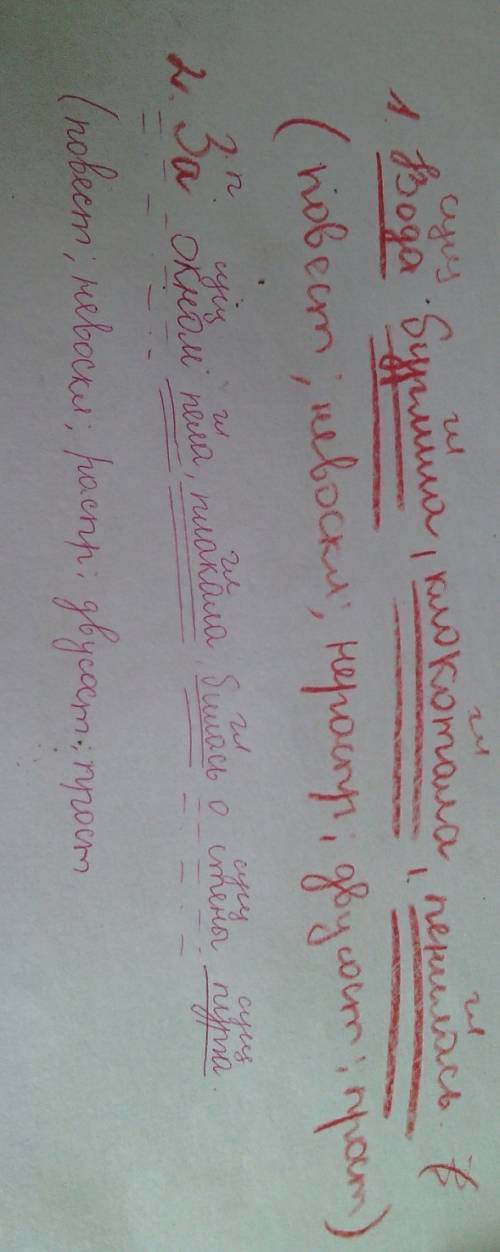 сущ гл гл гл
1. Вода бурлила, клокотала, пенилась.
(повест; невоскл; нераспр; двусост; прост)
п. сущ гл гл гл сущ сущ
2. За окном пела, плакала, билась о стены пурга.
(повест; невоскл; распр; двусост; прост